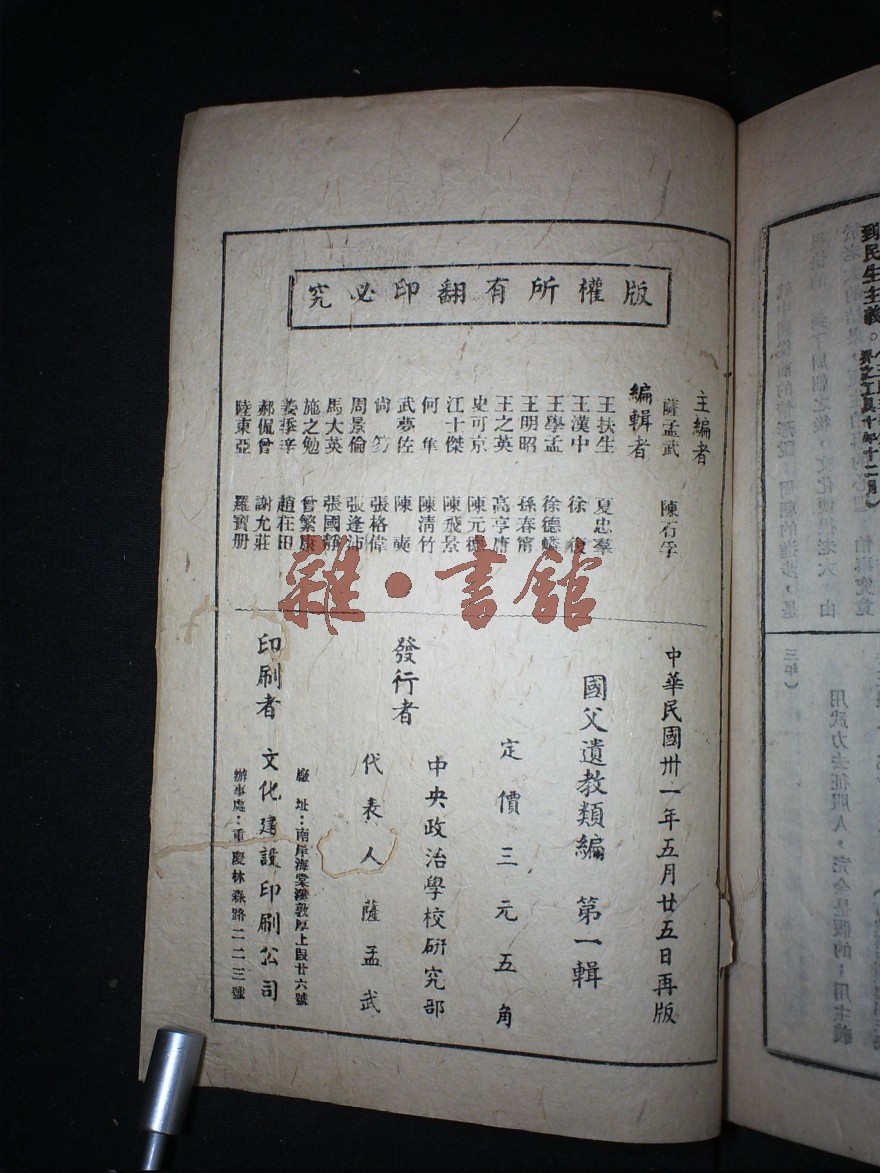 版權所有翻印必究
主編者
薩孟武 陳石孚
編輯者
王扶生 夏忠羣
王漢中 徐
王學孟 徐德
王明昭 孫春
王之英 高亨庸
史可京 陳元德
江十傑 陳飛景
何隼 陳清竹
武夢佐 陳奭
尙芴 張格偉
周景倫 張逢沛
馬大英 張國靜
施之勉 曾繁康
姜 辛 趙在田
郝侃曾 謝允莊
陸東亞 羅寶册
中華民國卅一年五月廿五日再版
國父遺教類編 第一輯
定價三元五角
發行者
中央政治學校研究部
代表人 薩孟武
印刷者 文化建設印刷公司
廠址：南岸海棠溪敦厚上段廿六號
辦事處：重慶林森路二二三號
雜·書館
到民生主義。
用武力去征服人，完全是假的；用主義
三年）